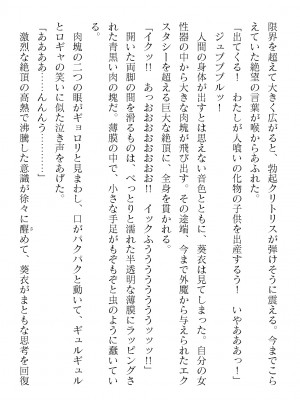 限界を超えて大きく広がると、勃起クリトリスが弾けそうに震える。今までこら
えていた絶望の言葉が喉からあふれた。
「出てくる　わたしが人喰いの化物の子供を出産するう！　いやあああっ！」
ジュブブブルッ！
人間の身体が出すとは思えない音色とともに、葵衣は見てしまった。自分の女
性器の中から大きな肉塊が飛び出す。その途端、今まで外魔から与えられたエク
スタシーを超える巨大な絶頂に、全身を貫かれる。
「イクッ!!　あっおおおおおおおっ!!　イックふうううううううううッッ!!」
開いた両脚の間を滑るのは、べっとりと濡れた半透明な薄膜にラッピングさ
れた青黒い肉の塊だ。薄膜の中で、小さな手足がもぞもぞと虫のように蠢いてい
る。
肉塊の二つの眼がギョロリと見まわし、口がパクパクと動いて、ギュルギュル
とロギャの笑いに似た泣き声をあげた。
「ああああ……んんんう…………」
激烈な絶頂の高熱で沸騰した意識が徐々に醒めて、葵衣がまともな思考を回復